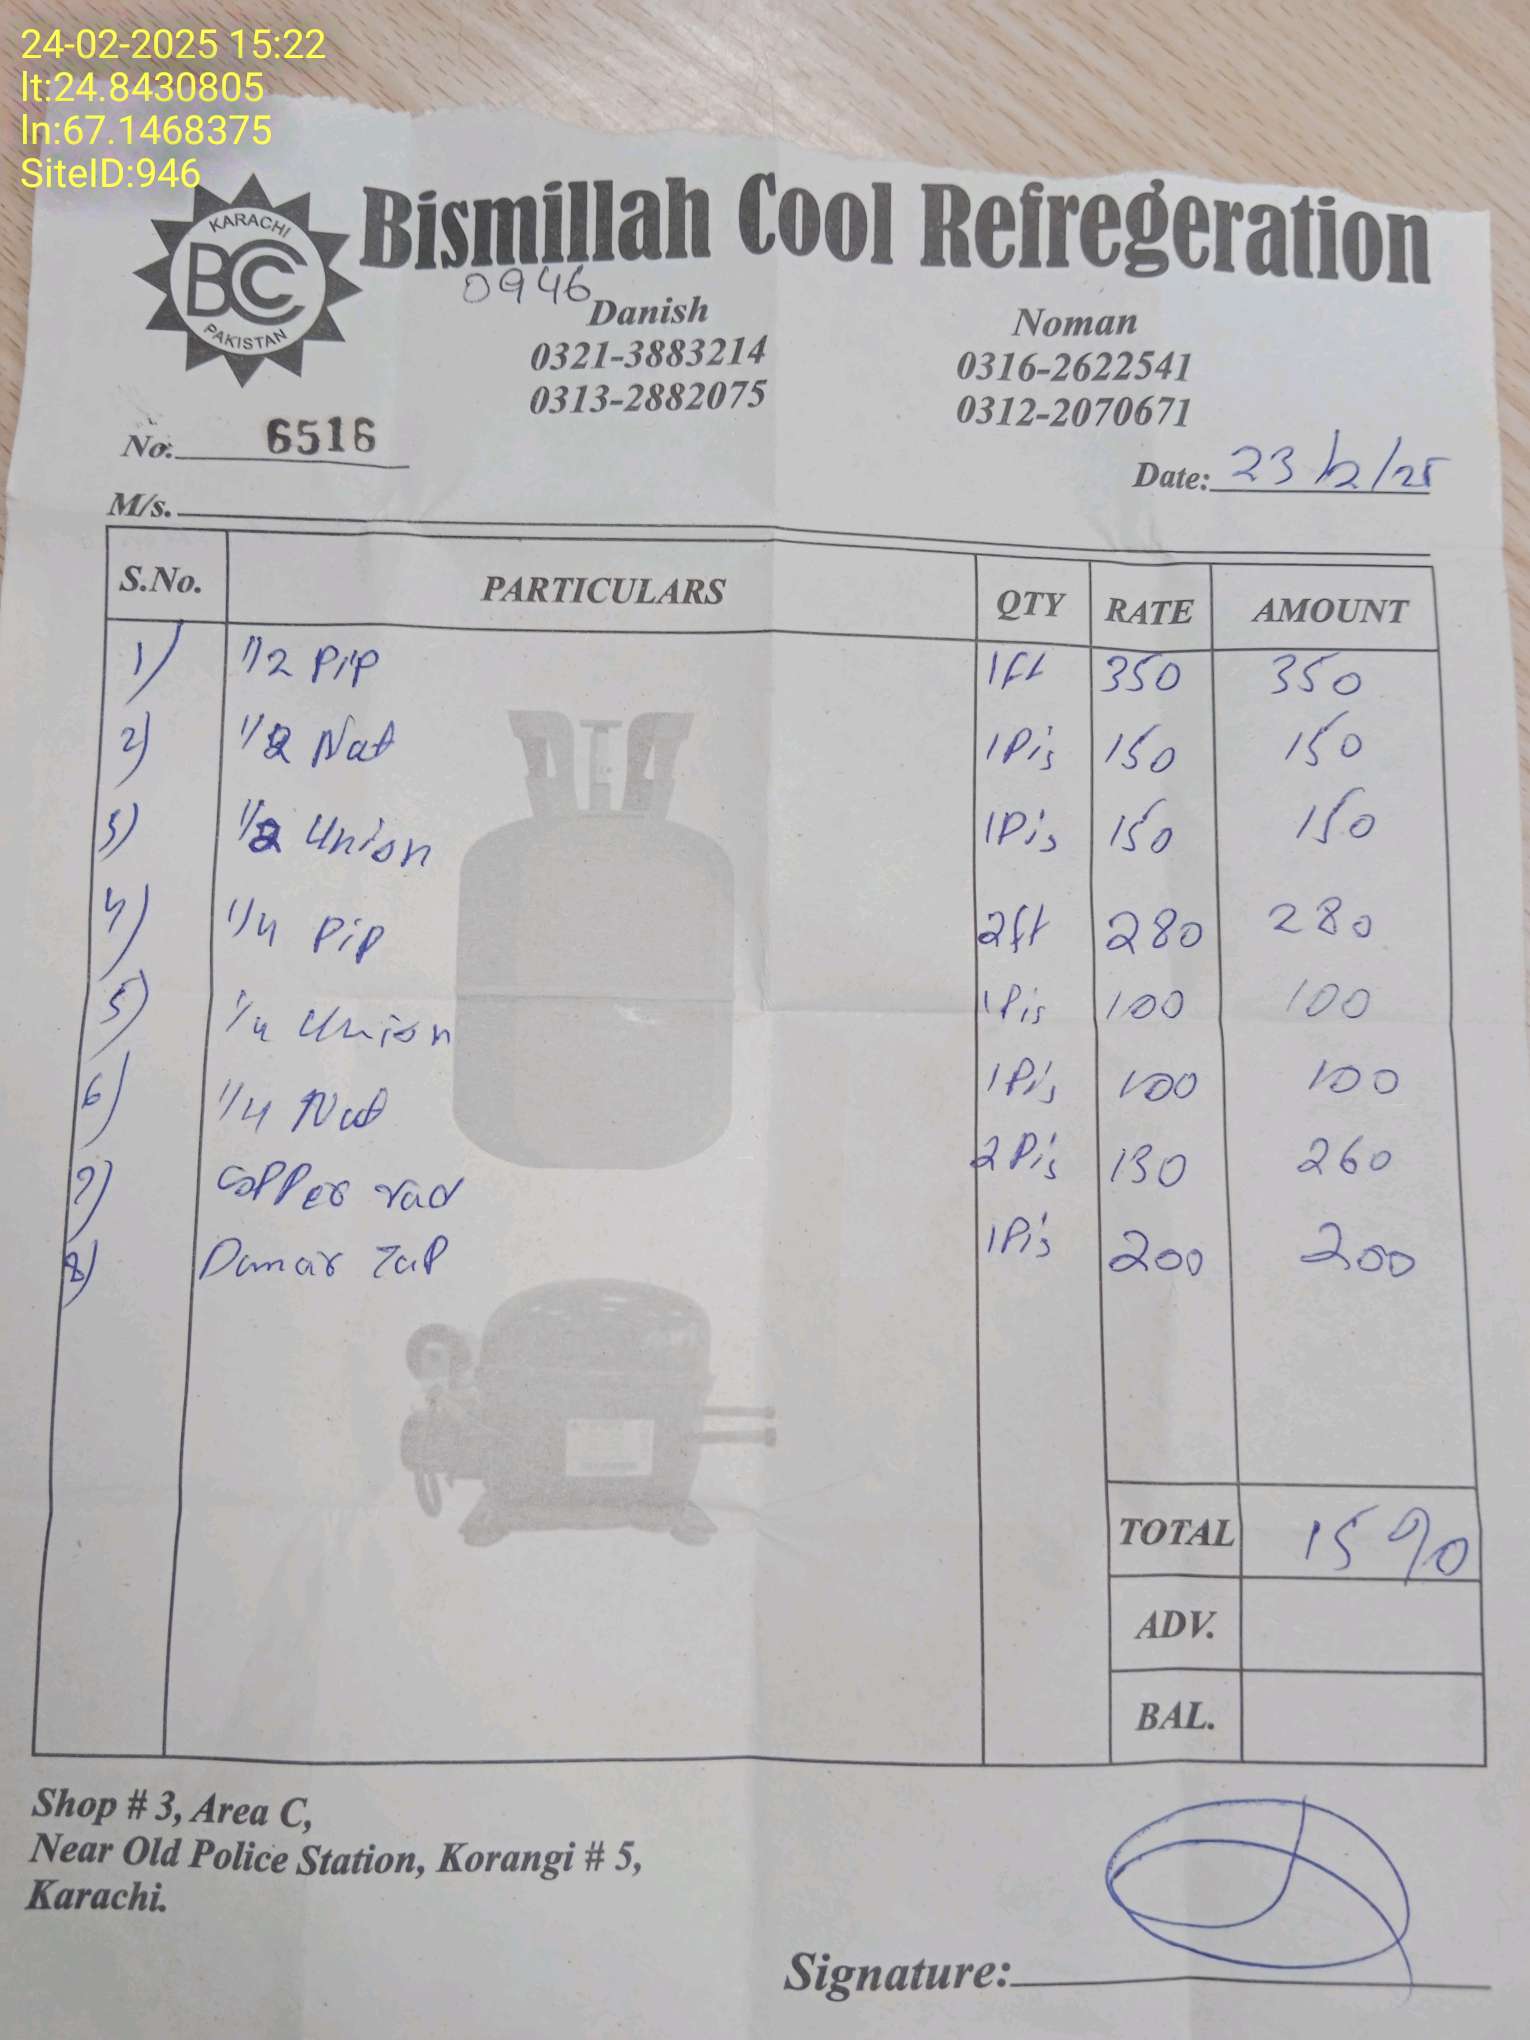 24-02-2025 15:22
lt:24.8430805
ln:67.1468375
SiteID:946
KARACHI
BCC
PAKISTAN
Bismillah Cool Refregeration
0946
Danish Noman
0321-3883214 0316-2622541
0313-2882075 0312-2070671
No. 6516
Date: 23/2/25
M/s.
S.No. PARTICULARS QTY RATE AMOUNT
1) 1/2 Pip 1ft 350 350
2) 1/2 Nat 1Pis 150 150
3) 1/2 Union 1Pis 150 150
4) 1/4 Pip 2ft 280 280
5) 1/4 Union 1Pis 100 100
6) 1/4 Nut 1Pis 100 100
7) Copper rad 2Pis 130 260
8) Danar Tap 1Pis 200 200
TOTAL 1590
ADV.
BAL.
Shop # 3, Area C,
Near Old Police Station, Korangi # 5,
Karachi.
Signature: